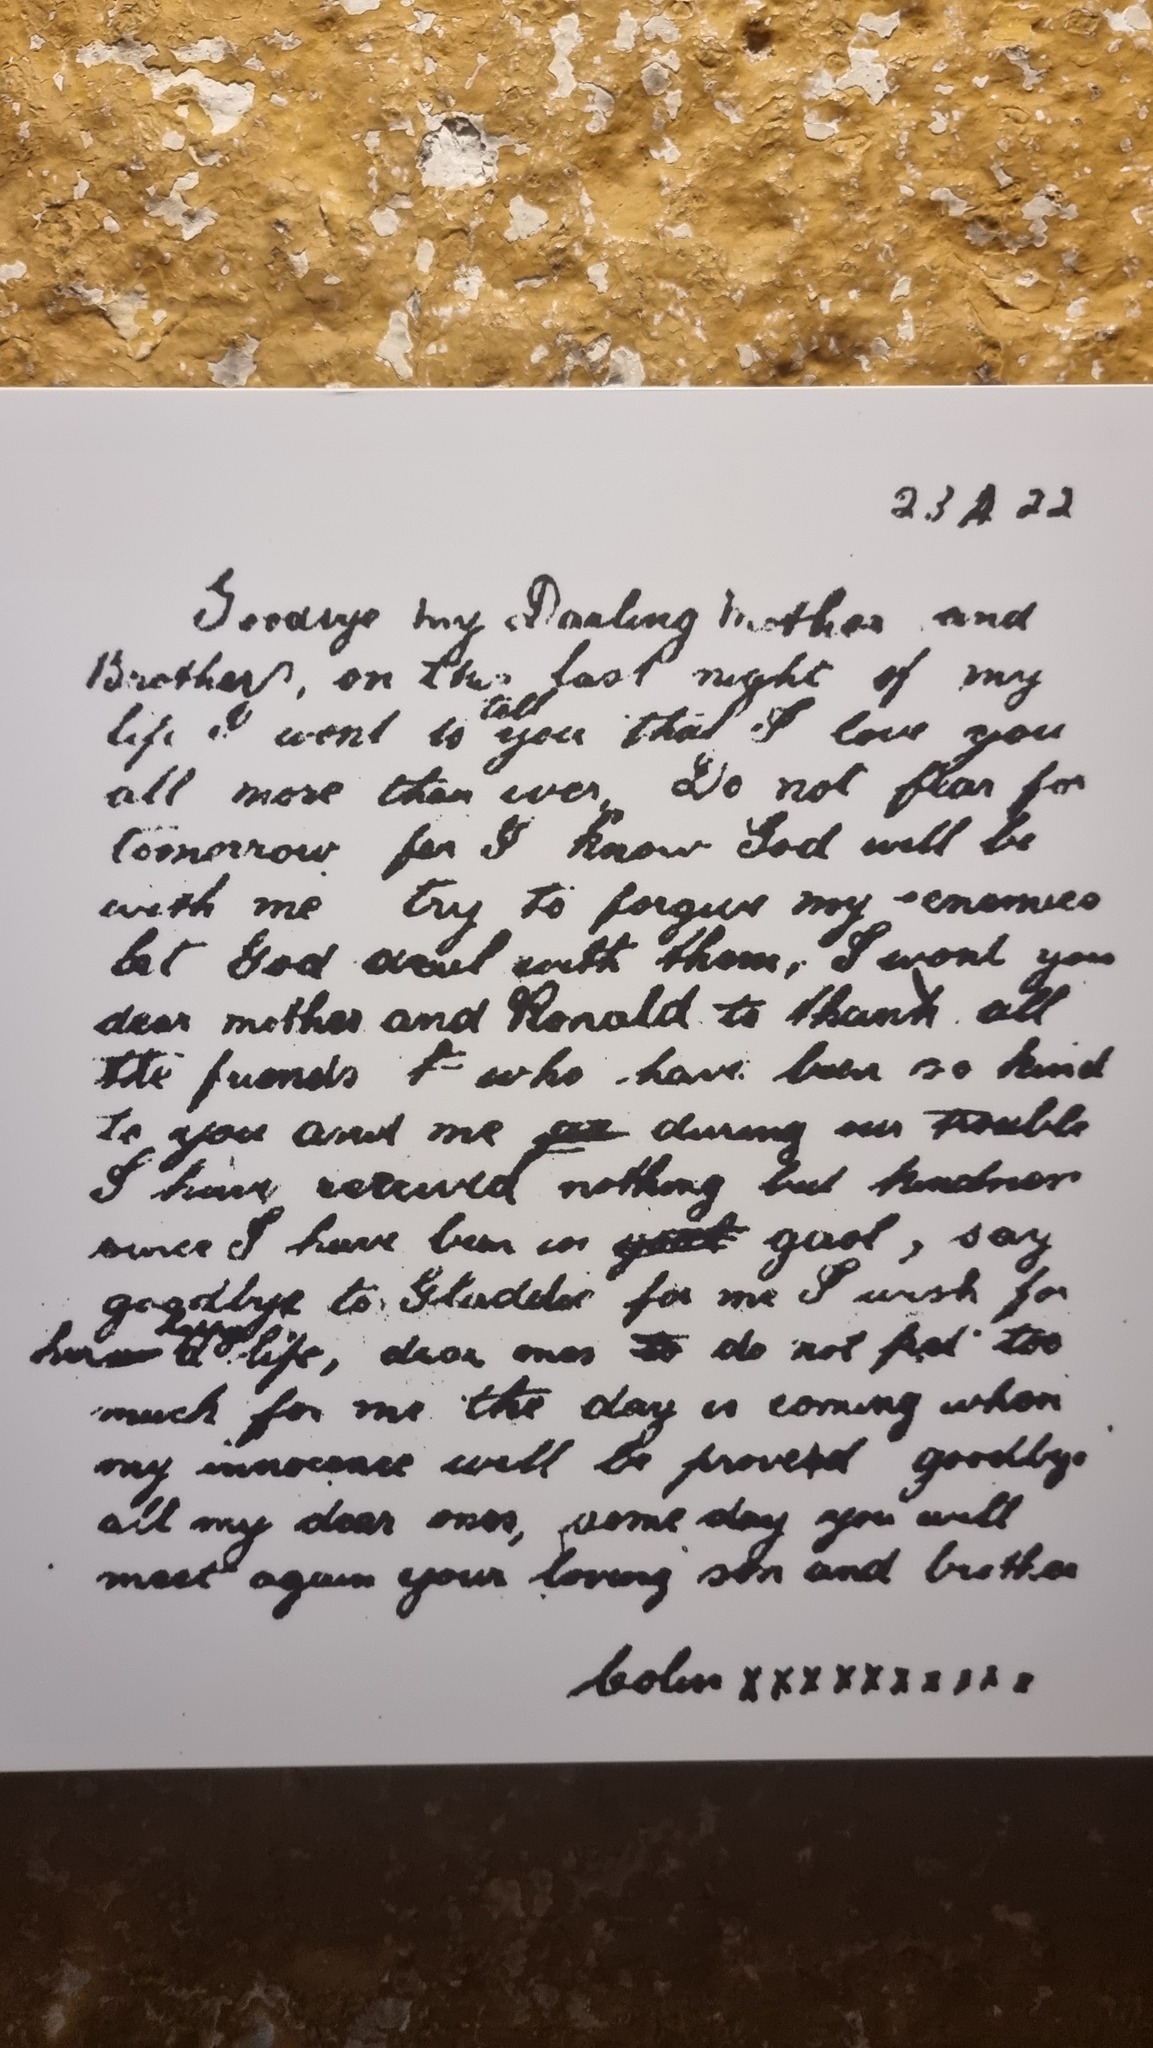 23 A 22
Goodbye my Darling Mother and
Brothers, on this last night of my
life I wont to tell you that I love you
all more than ever, Do not fear for
tomorrow for I know God will be
with me try to forgive my enemies
let God deal with them, I wont you
dear mother and Ronald to thank all
the friends who have been so kind
to you and me during our trouble
I have received nothing but kindness
since I have been in gaol, say
goodbye to for me I wish for
her a life, dear ones do not fret too
much for me the day is coming when
my innocence will be proved goodbye
all my dear ones, some day you will
meet again your loving son and brother
Colin xxxxxxxxxxx